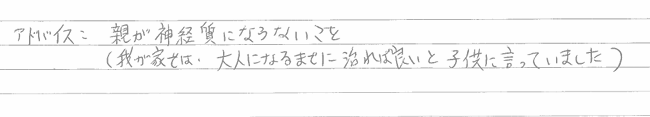 アドバイス： 親が神経質にならないことを
（我が家では、大人になるまでに治れば良いと子供に言っていました）